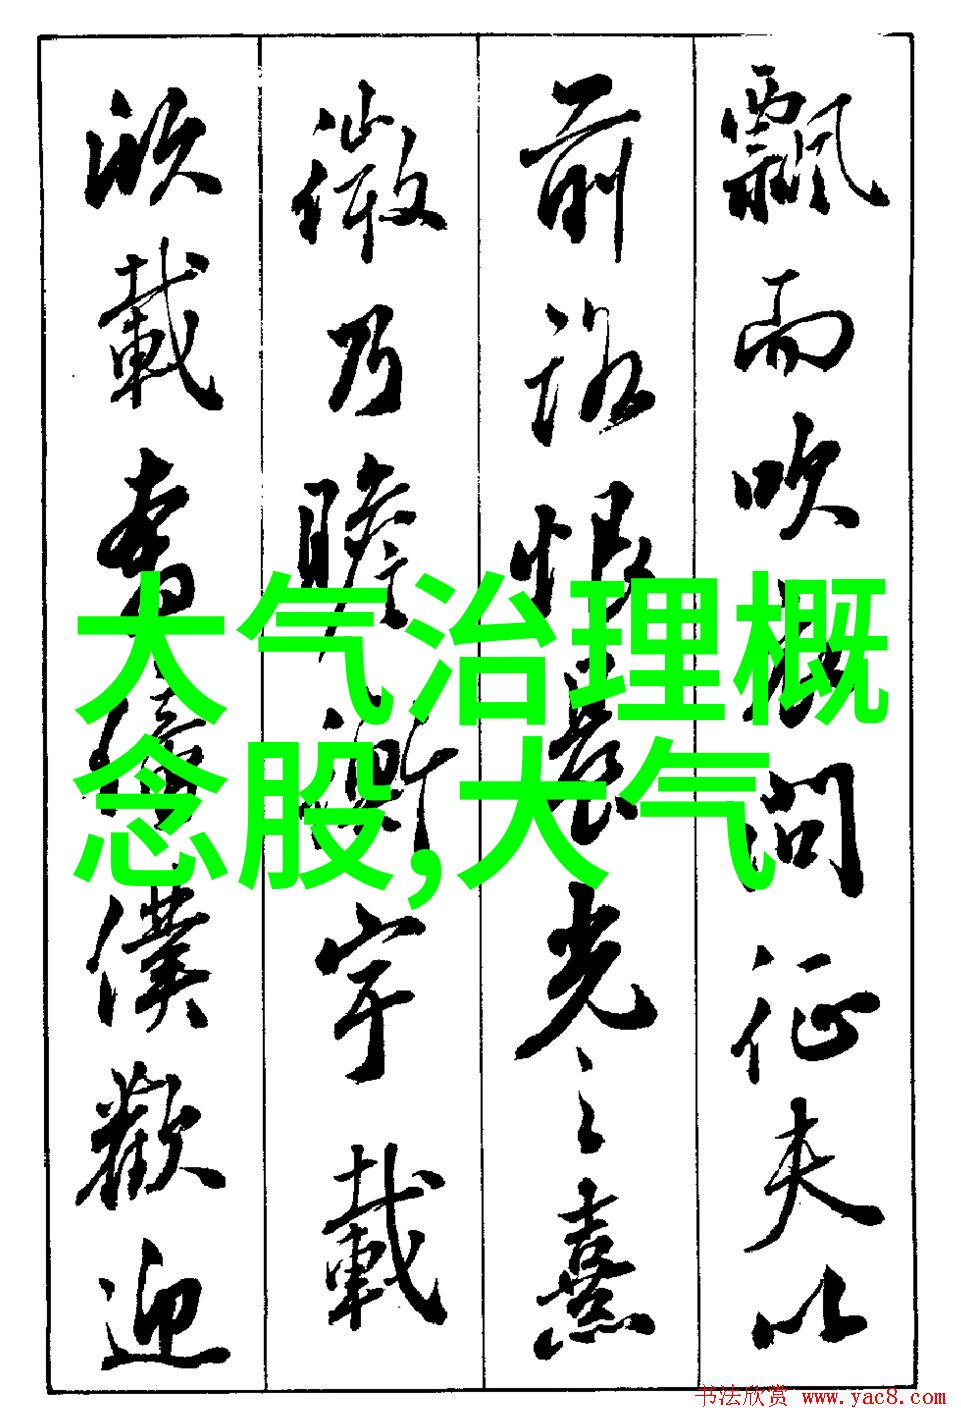 飄而吹衣問征夫以
前路恨晨光之熹
微乃瞻衡宇載
欣載奔僮僕歡迎
大气治理概
念股,大气
书法欣赏 www.yac8.com